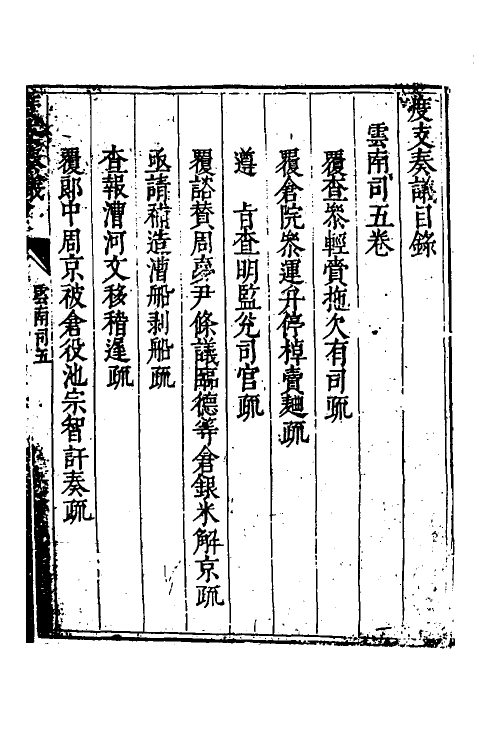 度支奏議目錄
雲南司五卷
覆查叅輕賫拖欠有司疏
覆倉院叅運弁停棹賣麵疏
遵 旨查明監兌司官疏
覆諮賛周彦尹條議臨德等倉銀米解京疏
亟請補造漕船剥船疏
查報漕河文移稽遲疏
覆郎中周京被倉役池宗智訐奏疏
雲南司五